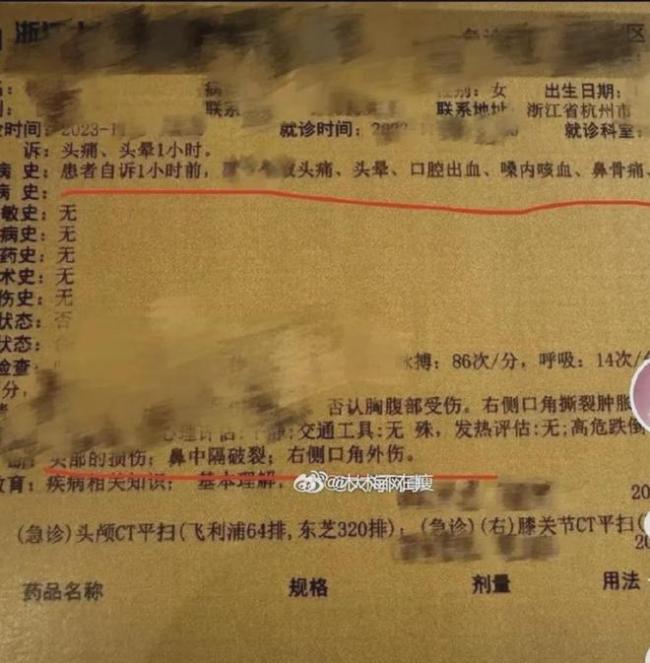 浙江
急诊
区
性别: 女 出生日期:
联系 联系地址 浙江省杭州市
诊时间: 2023-1 就诊时间: 202 就诊科室:
诉: 头痛、头晕1小时。
病 史: 患者自诉1小时前, 头痛、头晕、口腔出血、嗓内咳血、鼻骨痛、
病 史:
敏史: 无
病史: 无
药史: 无
术史: 无
伤史: 无
状态: 否
状态:
检查: 脉搏: 86次/分, 呼吸: 14次/
分,
否认胸腹部受伤。右侧口角撕裂肿胀
心理评估: 平静;交通工具:无 殊, 发热评估:无;高危跌倒
断: 头部的损伤; 鼻中隔破裂; 右侧口角外伤。
教育: 疾病相关知识; 基本理解,
20
(急诊)头颅CT平扫(飞利浦64排,东芝320排); (急诊)(右)膝关节CT平扫(
20
药品名称 规格 剂量 用法